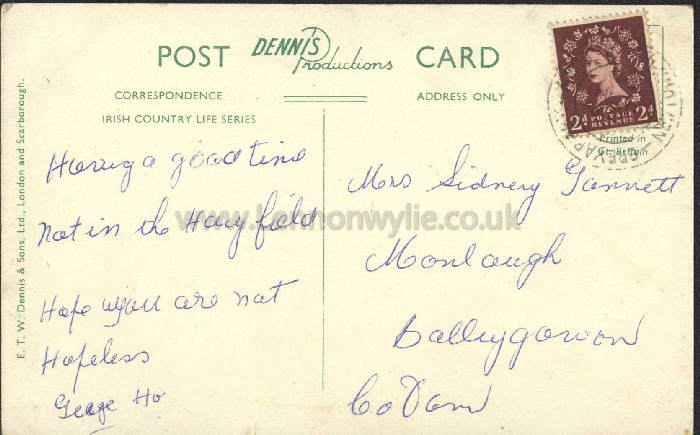 POST DENNIS Productions CARD
CORRESPONDENCE
ADDRESS ONLY
IRISH COUNTRY LIFE SERIES
E. T. W. Dennis & Sons, Ltd., London and Scarborough.
2d POSTAGE REVENUE 2d
Printed in
Gt. Britain
Having a good time
not in the Hay field
Hope you are not
Hopeless
Mrs Sidney
Monlough
Ballygowan
Co Down
www.lennonwylie.co.uk